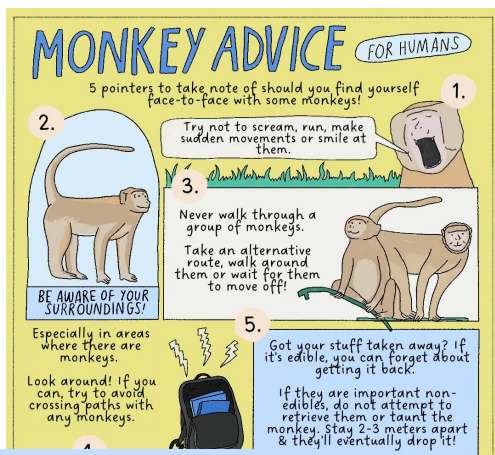 MONKEY ADVICE
FOR HUMANS
5 pointers to take note of should you find yourself
face-to-face with some monkeys!
1.
Try not to scream, run, make
sudden movements or smile at
them.
2.
BE AWARE OF YOUR
SURROUNDINGS!
Especially in areas
where there are
monkeys.
Look around! If you
can, try to avoid
crossing paths with
any monkeys.
3.
Never walk through a
group of monkeys.
Take an alternative
route, walk around
them or wait for them
to move off!
5.
Got your stuff taken away? If
it's edible, you can forget about
getting it back.
If they are important non-
edibles, do not attempt to
retrieve them or taunt the
monkey. Stay 2-3 meters apart
& they'll eventually drop it!